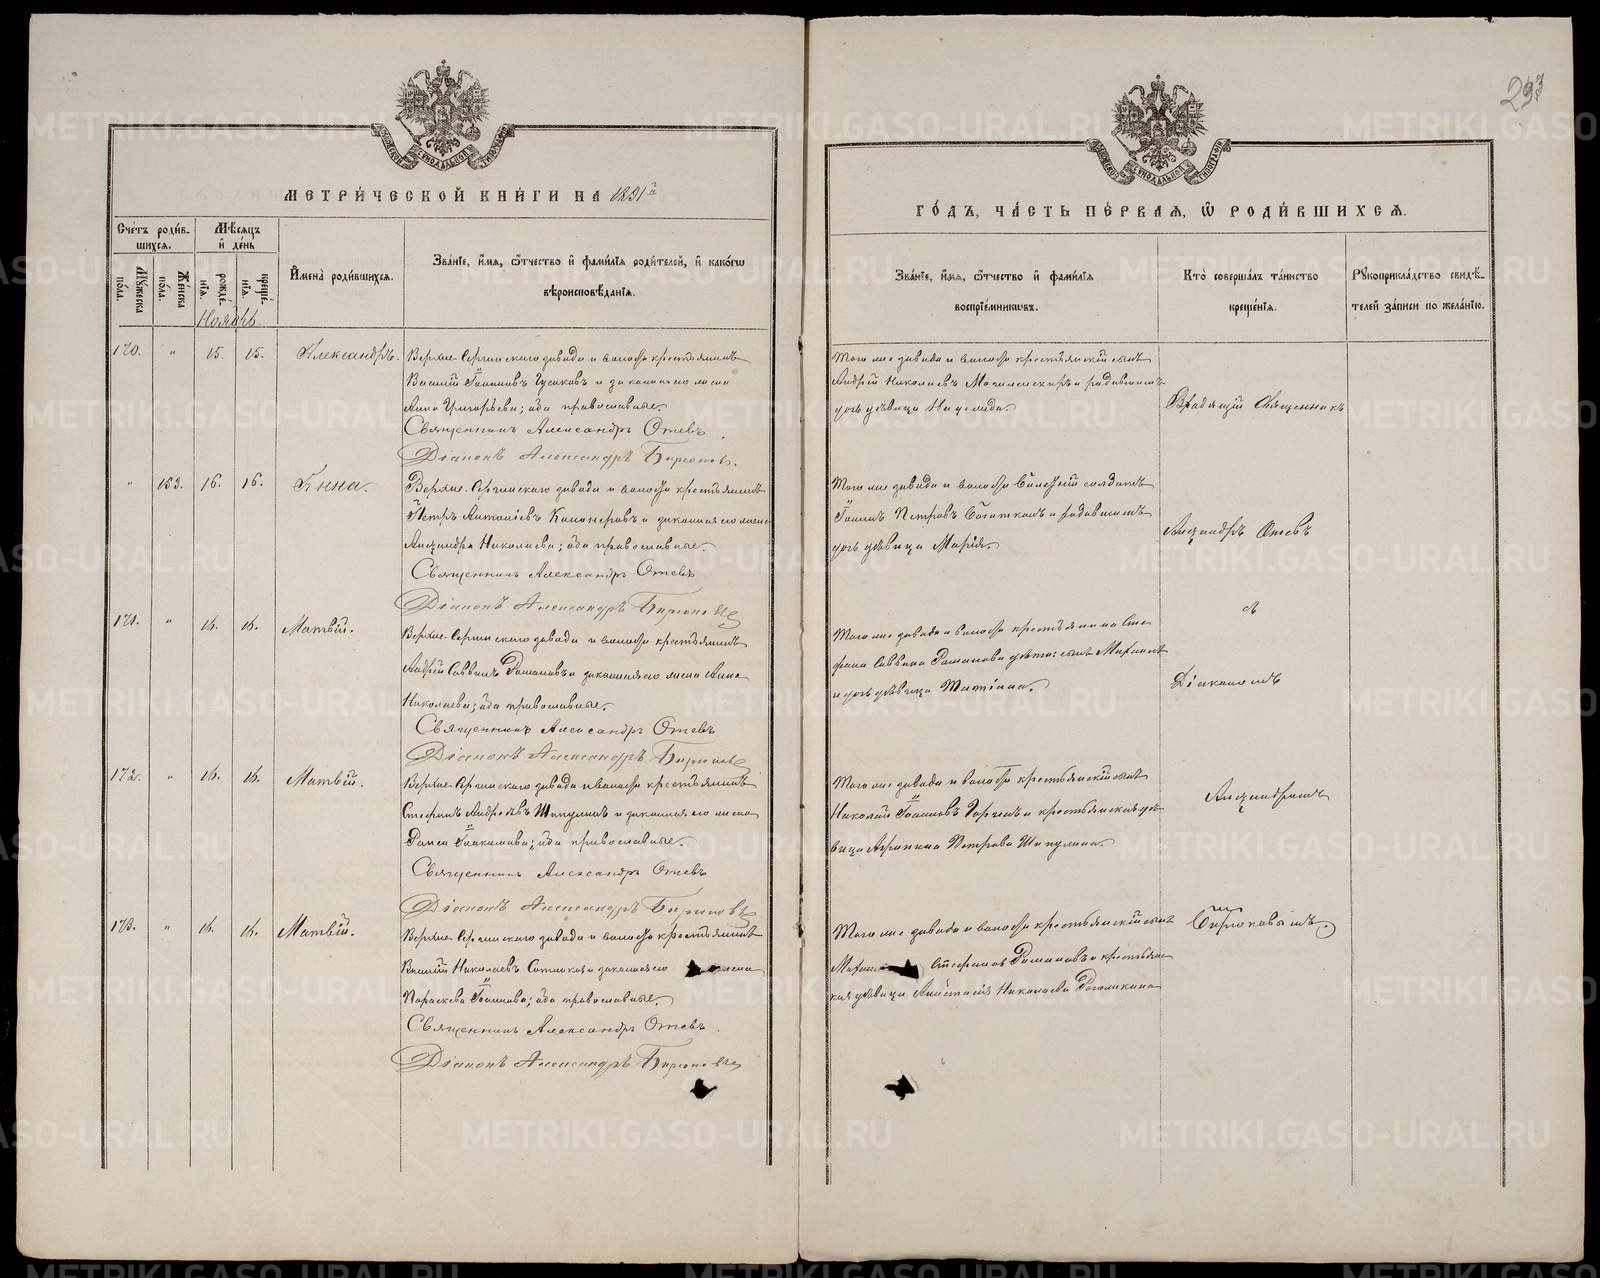 293
МЕТРИ́ЧЕСКОЙ КНИ́ГИ НА 1891й
ГО́ДЪ, ЧА́СТЬ ПЕ́РВАЯ, Ѡ РОДИ́ВШИХСЯ.
Сче́тъ роди́в-
шихся.
Мѣ́сяцъ
и́ де́нь
Му́жеска по́ла.
Же́нска по́ла.
рожде́-
нїя.
креще́-
нїя.
И҆мена̀ роди́вшихся.
Зва́нїе, и҆́мя, ѻ҆́тчество и҆ фами́лїя роди́телей, и҆ како́гѡ
вѣроисповѣ́данїя.
Зва́нїе, и҆́мя, ѻ҆́тчество и҆ фами́лїя
воспрїе́мниковъ.
Кто̀ соверша́лъ та́инство
креще́нїя.
Рꙋкоприкла́дство свидѣ́-
телей за́писи по жела́нїю.
Ноябрь
170. " 15. 15. Александръ.
Верхне-Сергинскаго завода и волости крестьянинъ
Василій Іоанновъ Гусаковъ и законная его жена
Анна Григорьева; оба православные.
Священникъ Александръ Отевъ
Діаконъ Александръ Бирюковъ.
Того же завода и волости крестьянскій сынъ
Андрей Николаевъ и родившихъ
дочь дѣвица
священникъ
" 153. 16. 16. Анна.
Верхне-Сергинскаго завода и волости крестьянинъ
Петръ и законная его жена
Александра Николаева; оба православные.
Священникъ Александръ Отевъ
Діаконъ Александръ Бирюковъ
Того же завода и волости солдатъ
Іоаннъ Петровъ и родившихъ
дочь дѣвица Марія.
Александръ Отевъ
171. " 16. 16. Матвій.
Верхне-Сергинскаго завода и волости крестьянинъ
Андрей Саввинъ Романовъ и законная его жена Анна
Николаева; оба православные.
Священникъ Александръ Отевъ
Діаконъ Александръ Бирюковъ
съ
Того же завода и волости крестьянина Сте-
фана Саввина Романова дѣти: сынъ Михаилъ
и дочь дѣвица
Діакономъ
172. " 16. 16. Матвій.
Верхне-Сергинскаго завода и волости крестьянинъ
Стефанъ Андреевъ Шипулинъ и законная его жена
Раиса Іоакимова; оба православные.
Священникъ Александръ Отевъ
Діаконъ Александръ Бирюковъ
Того же завода и волости крестьянскій сынъ
Николай Іоанновъ и крестьянская дѣ-
вица Петрова Шипулина.
Александромъ
173. " 16. 16. Матвій.
Верхне-Сергинскаго завода и волости крестьянинъ
Василій Николаевъ и законная его жена
Параскева Іоаннова; оба православные.
Священникъ Александръ Отевъ.
Діаконъ Александръ Бирюковъ
Того же завода и волости крестьянскій сынъ
Стефановъ Романовъ и крестьянс-
кая дѣвица Николаева
Бирюковымъ.
METRIKI.GASO-URAL.RU